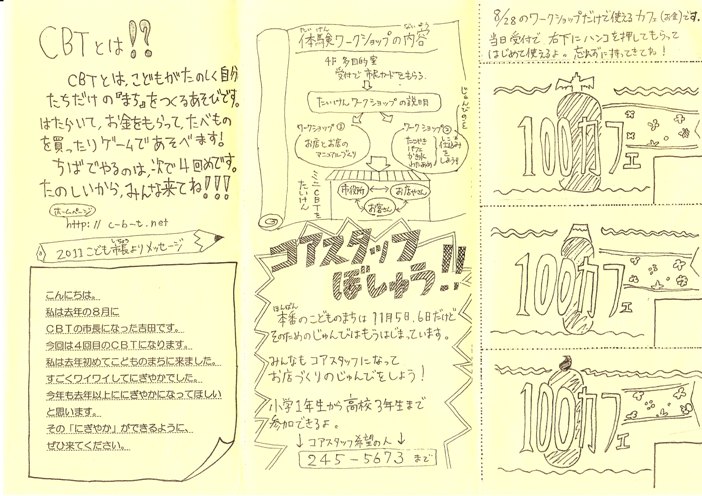 CBTとは!!
CBTとは、こどもがたのしく自分
たちだけの『まち』をつくるあそびです。
はたらいて、お金をもらって、たべもの
を買ったりゲームであそべます!
ちばでやるのは、次で4回めです。
たのしいから、みんな来てね!!!
ホームページ
http:// c-b-t.net
2011こども市長よりメッセージ
しちょう
こんにちは。
私は去年の8月に
CBTの市長になった吉田です。
今回は4回目のCBTになります。
私は去年初めてこどものまちに来ました。
すごくワイワイしてにぎやかでした。
今年も去年以上ににぎやかになってほしい
と思います。
その「にぎやか」ができるように、
ぜひ来てください。
たいけん ないよう
体験ワークショップの内容
4F 多目的室
受付で 市民カードをもらう。
たいけんワークショップの説明
じゅんびのこと
ワークショップ①
お店とお店の
マニュアルづくり
ワークショップ②
たこやき
パフェ
かき氷
わたあめ
仕込みを
しよう!
ミニCBTを
たいけん
市役所
お店やさん
お客さん
コアスタッフ
ぼしゅう!!
ほんばん
本番のこどものまちは11月5日、6日だけど
そのためのじゅんびはもうはじまっています。
みんなもコアスタッフになって
お店づくりのじゅんびをしよう!
小学1年生から高校3年生まで
参加できるよ。
↓コアスタッフ希望の人↓
245-5673 まで
8/28のワークショップだけで使えるカフェ(お金)です。
当日受付で 右下にハンコを押してもらって
はじめて使えるよ。忘れずに持ってきてね!
100カフェ
100カフェ
100カフェ